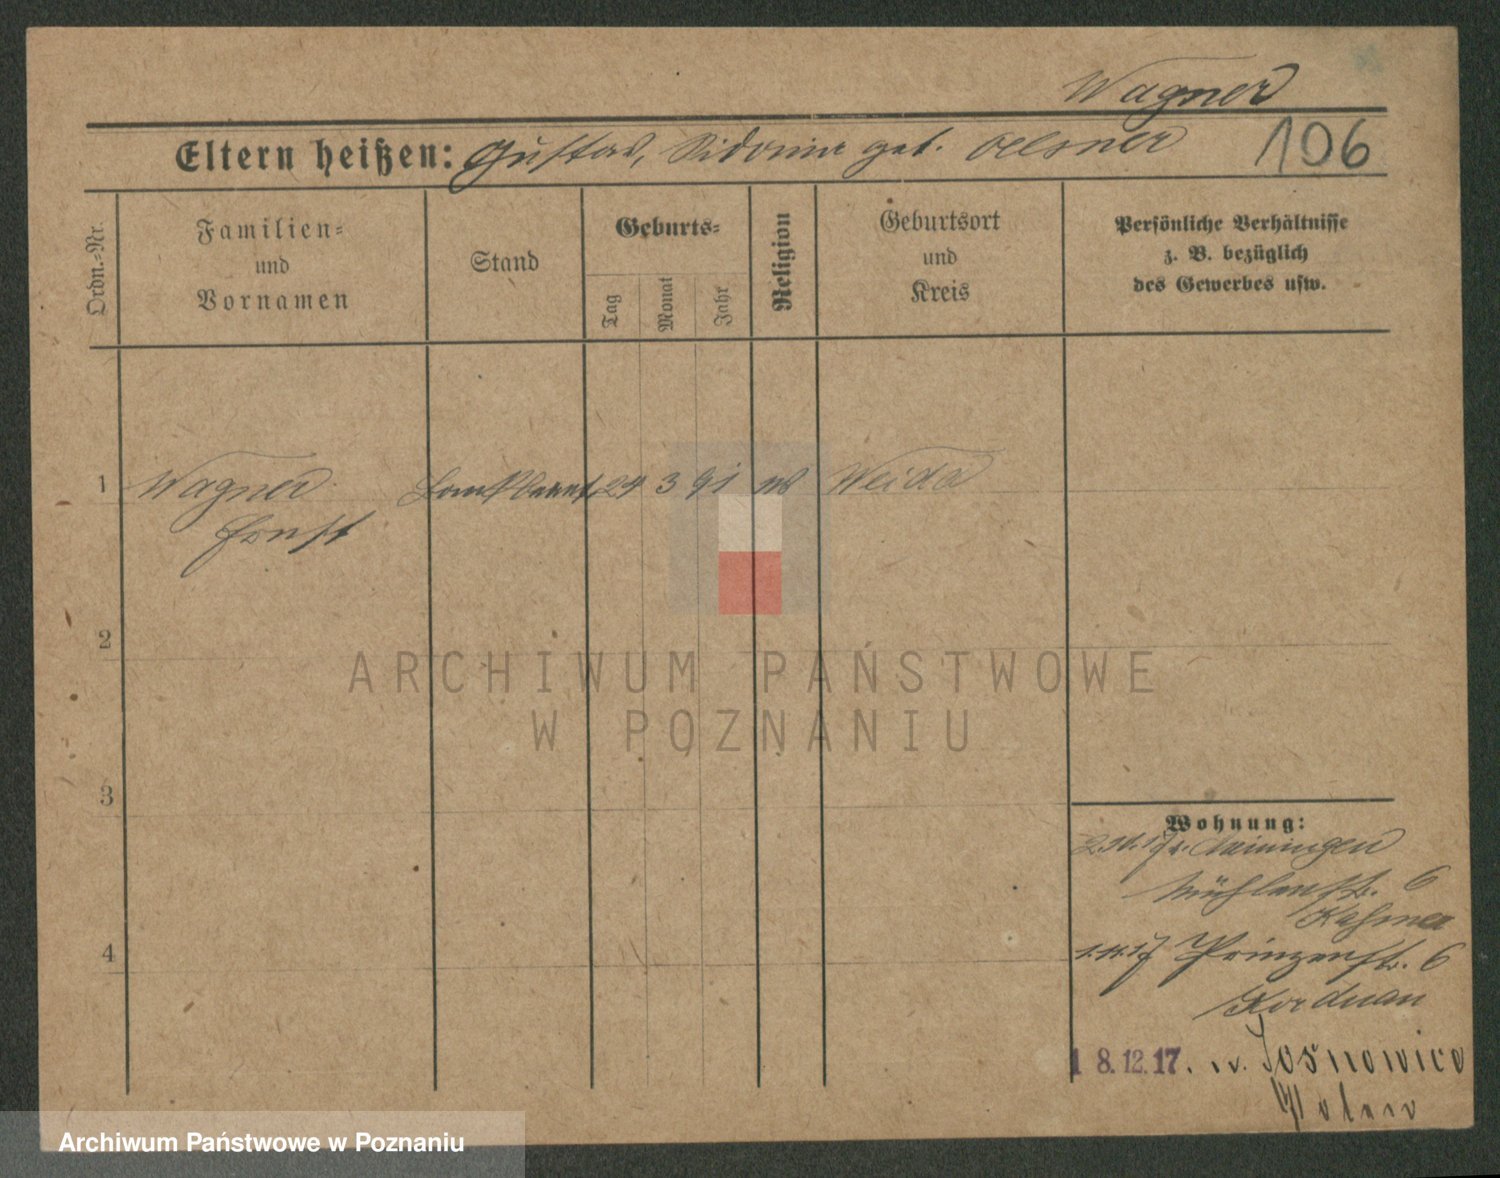 Wagner
Eltern heißen: Gustav, Sidonie geb. Oelsner
106
Ordn.-Nr.
Familien=
und
Vornamen
Stand
Geburts=
Tag
Monat
Jahr
Religion
Geburtsort
und
Kreis
Persönliche Verhältnisse
z. B. bezüglich
des Gewerbes usw.
1 Wagner 24 3 91 Weida
Ernst
2
3
4
Wohnung:
v. Meiningen
Mühlenstr. 6
1.11.17 Prinzenstr. 6
Korduan
18.12.17. n. Sosnowice
Polen
ARCHIWUM PAŃSTWOWE
W POZNANIU
Archiwum Państwowe w Poznaniu